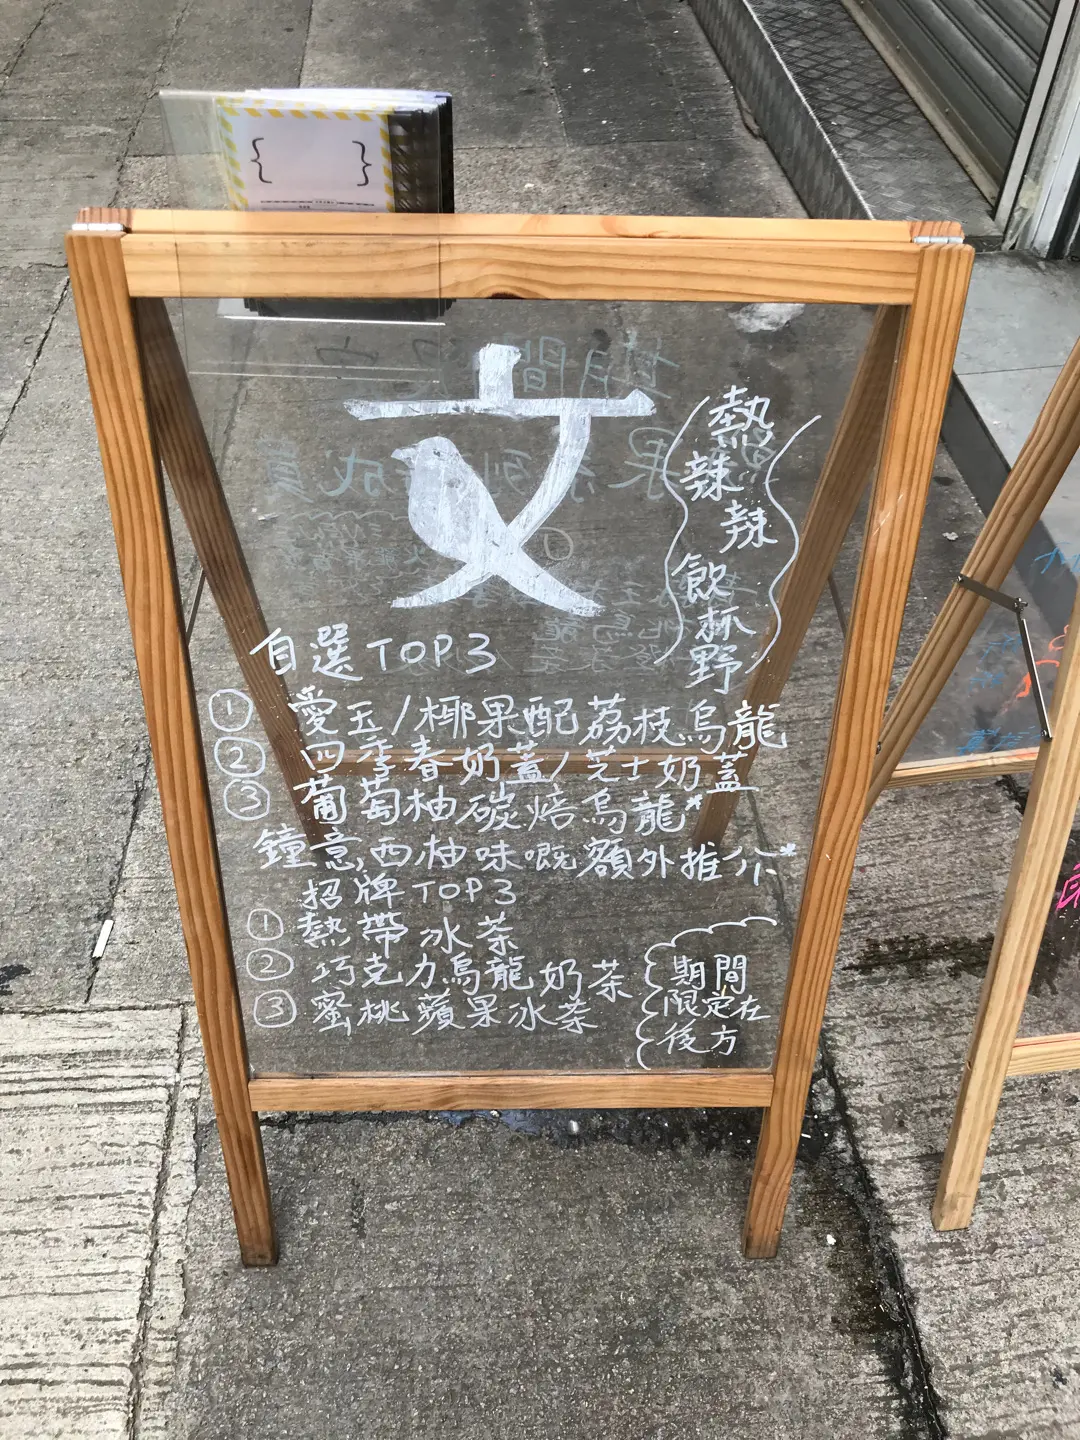 文
熱辣辣飲杯野
自選TOP3
① 愛玉/椰果配荔枝烏龍
② 四季春奶蓋/芝士奶蓋
③ 葡萄柚碳焙烏龍*
鐘意西柚味嘅額外推介*
招牌TOP3
① 熱帶冰茶
② 巧克力烏龍奶茶
③ 蜜桃蘋果冰茶
期間
限定在
後方